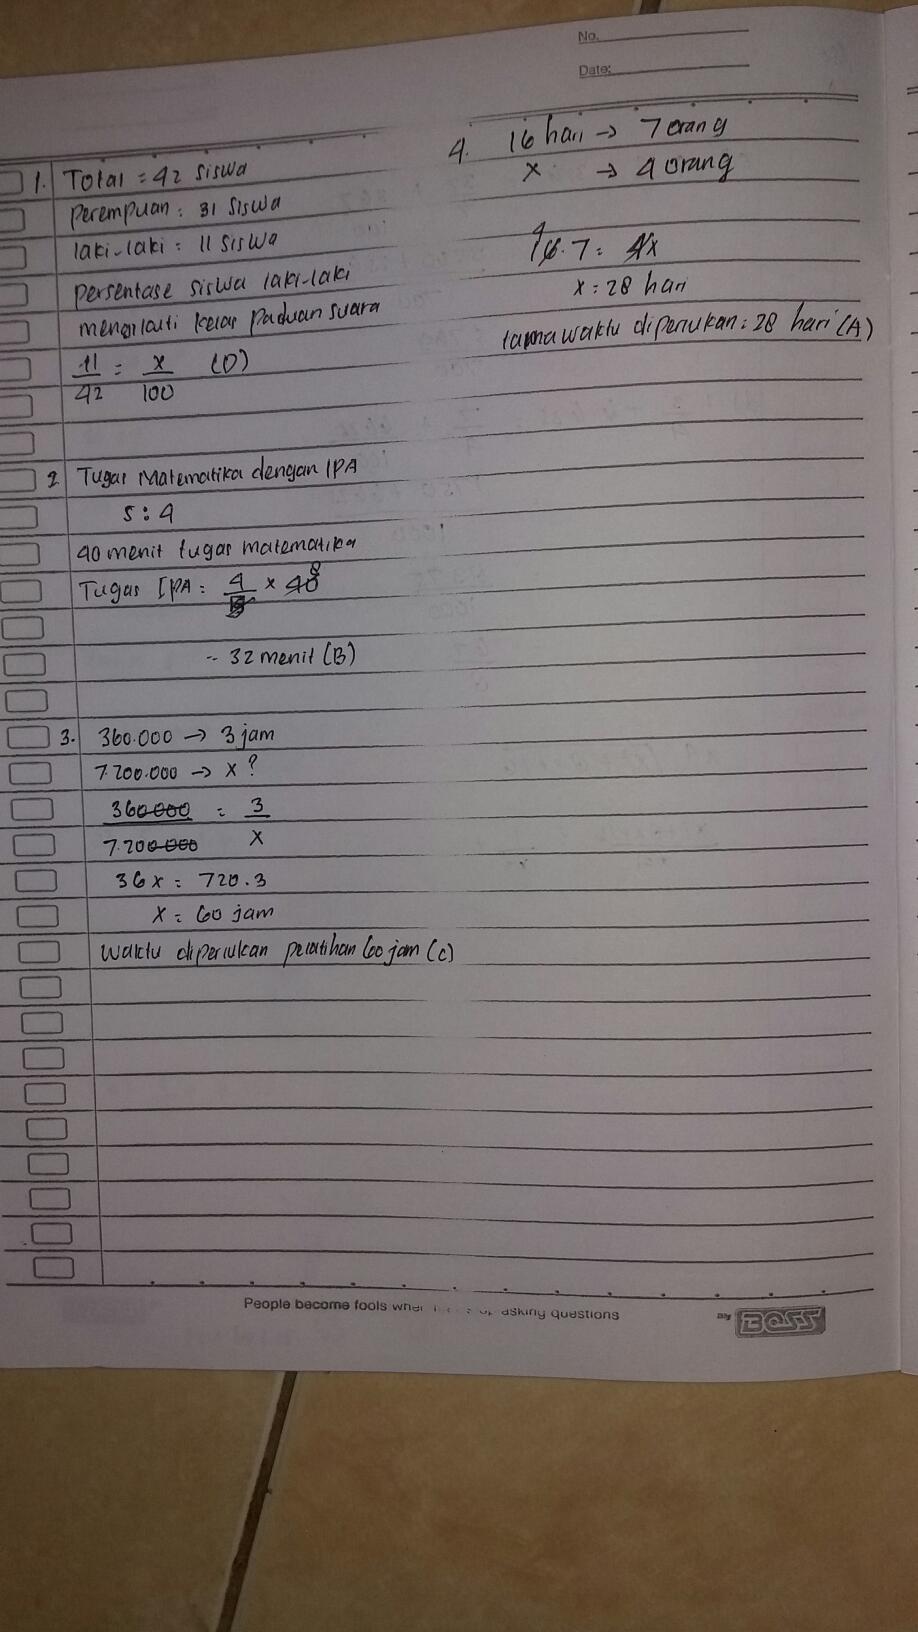 No.
Date:
1. Total = 42 siswa
perempuan : 31 siswa
laki-laki = 11 siswa
persentase siswa laki-laki
mengikuti kelas paduan suara
11/42 = x/100 (D)
2 Tugas Matematika dengan IPA
5 : 4
40 menit tugas matematika
Tugas IPA = 4/5 × 40 8
32 menit (B)
3. 360.000 → 3 jam
7.200.000 → x ?
360000/7.200000 = 3/x
36x = 720.3
x = 60 jam
Waktu diperlukan pelatihan 60 jam (C)
4. 16 hari → 7 orang
x → 4 orang
4
16.7 = 4x
x = 28 hari
lama waktu diperlukan : 28 hari (A)
People become fools when asking questions
By BOSS